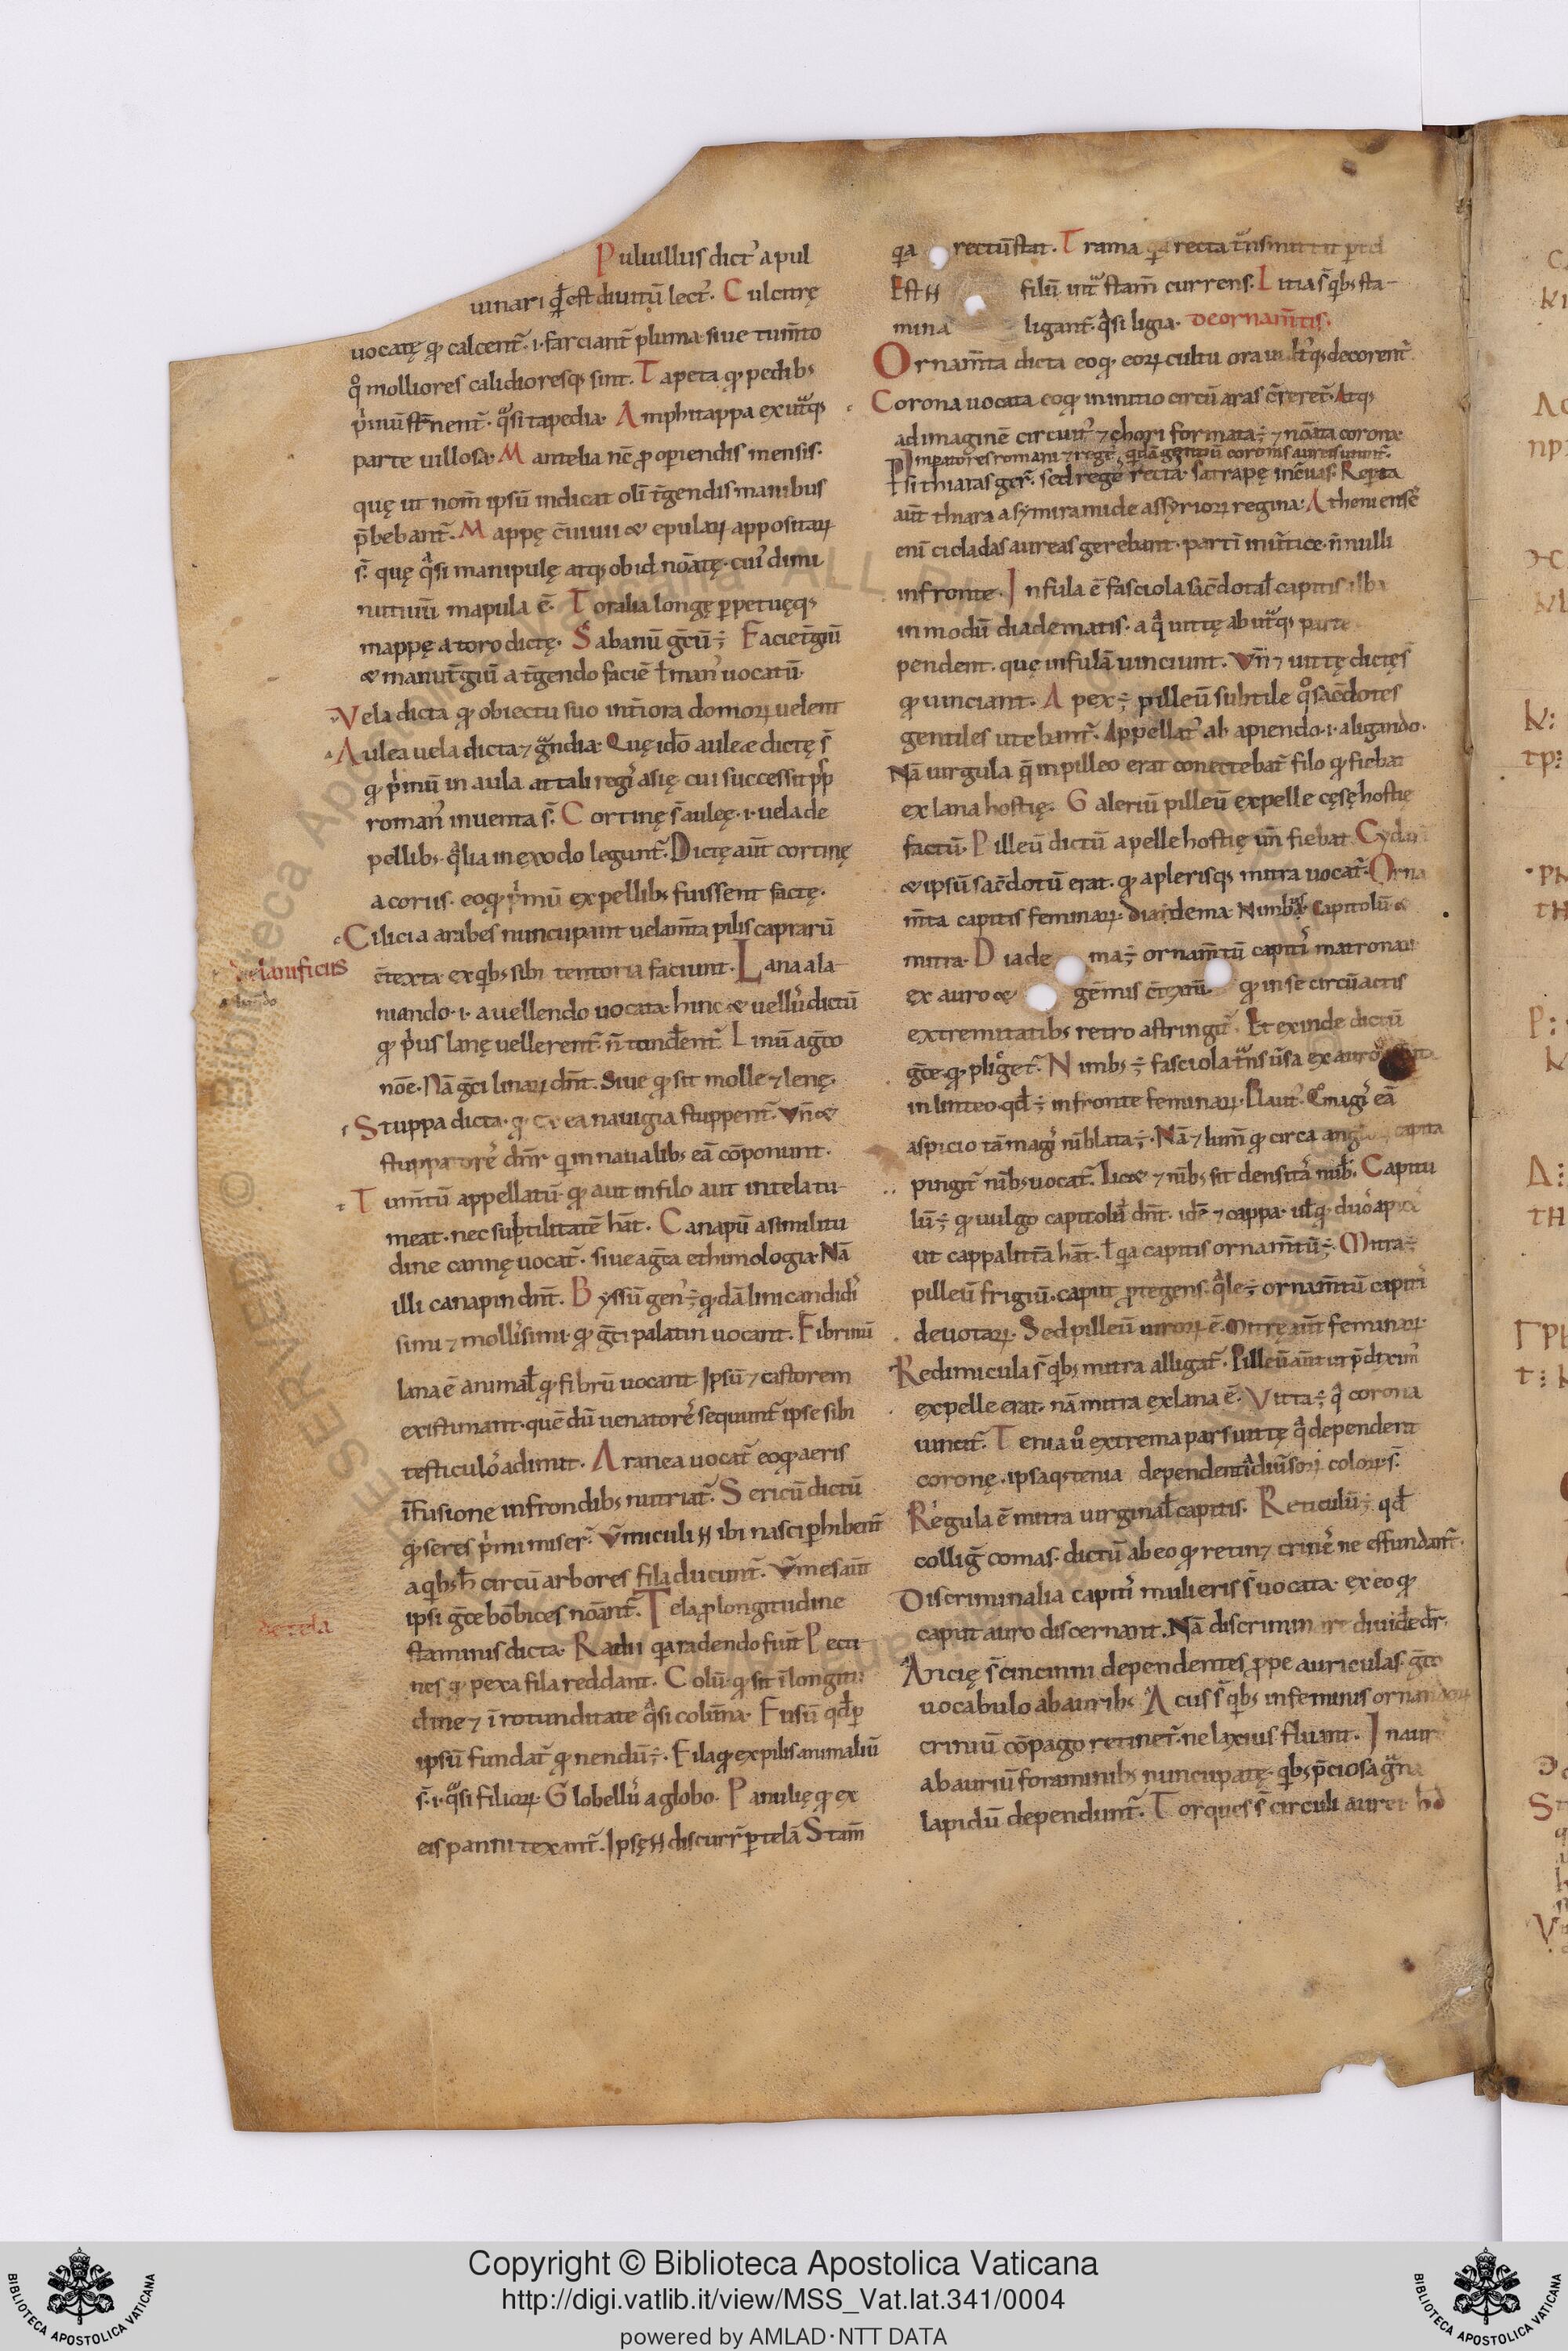 Puluillus dict᾽ a pul
uinari qd̄ est diuitū lect᾽. Culcitrę
uocatę qꝫ calcent᷑ ·i· farciant᷑ pluma siue tum̄to
qͦ molliores calidioresqꝫ sint. Tapeta qꝫ pedibꝫ
p̓mū st᷑nent᷑. qͣsi tapedia. Amphitappa ex ut᷑qꝫ
parte uillosa. Mantelia nc̄ ꝓ operiendis mensis.
quę ut nom̄ ipsū indicat olī t᷑gendis manibus
p̄bebant᷑. Mappę c̄uiuii & epulaꝝ appositaꝝ
s̄. quę qͣsi manipulę atqꝫ ob id nōatę. cui᾽ dimi
nutiuū mapula ē. Toralia longę ꝑpetuęqꝫ
mappę a toro dictę. Sabanū gc̄ū ÷ Faciet᷑giū
& manut᷑giū a t᷑gendo faciē ł man᾽ uocatū.
Vela dicta qꝫ obiectu suo int᷑iora domoꝝ uelent
Aulea uela dicta ⁊ gͣndia. Quę idō auleae dictę s̄
qꝫ p̓mū in aula attali regi᾽ asię cui successit pp̄
roman᾽ inuenta s̄. Cortinę s̄ auleę ·i· uela de
pellibꝫ. qͣlia in exodo legunt᷑. Dictę aūt cortinę
a coriis. eo qꝫ p̓mū ex pellibꝫ fuissent factę.
Cilicia arabes nuncupant uelam̄ta pilis caprarū
c̄texta. ex qͥbꝫ sibi tentoria faciunt. Lana a la
lanificiis
niando ·i· a uellendo uocata. hinc & uell᾽ dictū
qꝫ p̓us lanę uellerent᷑. n̄ tonderent᷑. Linū a gc̄o
nōe. Nā gc̄i linaꝝ dn̄t. Siue qꝫ sit molle ⁊ lenę.
Stuppa dicta. qꝫ ex ea nauigia stuppent᷑. Vn̄ &
stuppatore᾽ dn̄r qͥ in naualibꝫ eā cōponunt.
Tum̄tū appellatū. qꝫ aut in filo aut in tela tu
meat. nec subtilitatē hāt. Canapū a similitu
dine cannę uocat᷑. siue a gc̄a ethimologia. Nā
illi canapin dn̄t. Byssū gen᾽ ÷ qꝫdā lini candidi᾽
simi ⁊ mollissimi. qꝫ gc̄i palatin uocant. Fibrinū
lana ē animał qꝫ fibrū uocant. Ipsū ⁊ castorem
existimant. quē dū uenatore᾽ sequunt᷑ ipse sibi
testiculo᾽ adimit. Aranea uocat᷑ eo qꝫ aeris
īfusione in frondibꝫ nutriat᷑. Sericū dictū
qꝫ seres p̓mi miser᷑. V᷑miculi H ibi nasci ꝑhibent᷑
a qͥbꝫ h̄ circū arbores fila ducunt᷑. V᷑mes aūt
ipsi gc̄e bōbices nōant᷑. Tela ꝓ longitudine
de tela
staminis dicta. Radii qͥa radendo fiūt. Pecti
nes qꝫ pexa fila reddant. Colū. qꝫ sit ī longitu
dine ⁊ ī rotunditate qͣsi colūna. Fusū qd̄ ꝑ
ipsū fundat᷑ qꝫ nendū ÷. Fila qꝫ ex pilis animaliū
s̄ ·i· qͣsi filioꝝ. Globell᾽ a globo. Panulię qꝫ ex
eis panni texant᷑. Ipsę H discurr᷑ ꝑ telā Stam̄
qͥa rectū stat. Trama qͥa recta t᷑nsmittit᷑ ꝑ tel
Est H filū int᷑ stam̄ currens. Litia s̄ qͥbꝫ sta-
mina ligant᷑. qͣsi ligia. De ornam̄tis.
Ornam̄ta dicta eo qꝫ eoꝝ cultu ora uultusqꝫ decorent᷑
Corona uocata eo qꝫ in initio circū aras c᷑reret᷑. Atqꝫ
ad imaginē circuit᾽ ⁊ chori formata ÷ ⁊ nōata corona.
Imperatores romani ⁊ rege᾽ qͥdā gentiū coronis aureis utunt᷑.
Psi thiaras ger᷑. sed rege᾽ recta. satrapę incuruas. Reperta
aūt thiara a symiramide assyrioꝝ regina. Atheniense᾽
enī cicladas aureas gerebant. partī in ūtice. n̄ nulli
in fronte. Infula ē fasciola sac̄dotał capitis alba
in modū diadematis. a qͣ uittę ab ut᷑qꝫ parte
pendent. quę infulā uinciunt. Vn̄ ⁊ uittę dictę s̄
qꝫ uinciant. Apex ÷ pilleū subtile qͦ sac̄dotes
gentiles utebant᷑. Appellat᾽ ab apiendo ·i· aligando.
Nā uirgula q̄ in pilleo erat conectebat᷑ filo qꝫ fiebat
ex lana hostię. Galeriū pilleū ex pelle cęsę hostię
factū. Pilleū dictū a pelle hostię un̄ fiebat. Cydar
& ipsū sac̄dotū erat. qꝫ a plerisqꝫ mitra uocat᷑. Orna
m̄ta capitis feminaꝝ. Diadema Nimbꝫ. Capitolū &
mitra. Diadema ÷ ornam̄tū capiti᾽ matronaꝝ
ex auro & gēmis c̄textū. qꝫ in se circū actis
extremitatibꝫ retro astringit᷑. Et exinde dictū
gc̄e. qꝫ p̄liget᷑. Nimbꝫ ÷ fasciola t᷑nsū̄sa ex auro
in linteo. qd̄ ÷ in fronte feminaꝝ. Plaut᾽. Qͦ magi᾽ eā
aspicio tā magi᾽ nīblata ÷. Nā ⁊ lum̄ qꝫ circa angloꝝ capita
pingit᷑ nībꝫ uocat᷑. Licet ⁊ nībꝫ sit densita᾽ nub̄. Capitu
lū ÷ qꝫ uulgo capitolū dn̄t. idē ⁊ cappa. uł qꝫ duo᾽ apice᾽
ut cappa litt᷑a hāt. ł qͥa capitis ornam̄tū ÷. Mitra ÷
pilleū frigiū. caput ꝓtegens. qͣle ÷ ornam̄tū capiti᾽
deuotaꝝ. Sed pilleū uiroꝝ ē. mitrę aūt feminaꝝ.
Redimicula s̄ qͥbꝫ mitra alligat᷑. Pilleū aūt ut p̄dixim᾽
ex pelle erat. nā mitra ex lana ē. Vitta ÷ qͣ corona
uincit᷑. Tenia uͦ extrema pars uittę qͣ dependent
coronę. ipsaqꝫ tenia dependent diūsoꝝ coloꝝ s̄.
Regula ē mitra uirginał capitis. Reticulū ÷ qd̄
collig᷑ comas. dictū ab eo qꝫ retin⁊ crine᾽ ne effundant᷑.
Discriminalia capiti᾽ mulieris s̄ uocata. ex eo qꝫ
caput auro discernant. Nā discriminare diuidē dr᷑.
Ancię s̄ cincinni dependentes ꝓpe auriculas. gc̄o
uocabulo ab auribꝫ. Acus s̄ qͥbꝫ in feminis ornandoꝝ
criniū cōpago retinet᷑. ne laxius fluant. Inaur
ab auriū foraminibꝫ nuncupatę. qͥbꝫ p̄ciosa gͣna
lapidū dependunt᷑. Torques s̄ circuli aurei
Copyright © Biblioteca Apostolica Vaticana
http://digi.vatlib.it/view/MSS_Vat.lat.341/0004
powered by AMLAD·NTT DATA
BIBLIOTECA APOSTOLICA VATICANA
BIBLIOTECA APOSTOLICA VATICANA